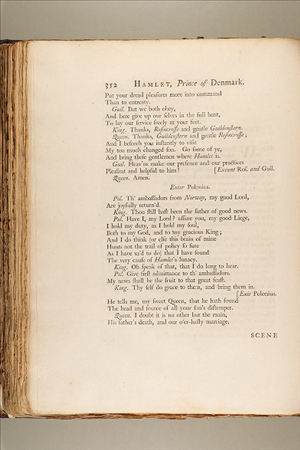 352 HAMLET, Prince of Denmark.
Put your dread pleasures more into command
Than to entreaty.
Guil. But we both obey,
And here give up our selves in the full bent,
To lay our service freely at your feet.
King. Thanks, Rosincrosse and gentle Guildenstern.
Queen. Thanks, Guildenstern and gentle Rosincrosse;
And I beseech you instantly to visit
My too much changed son. Go some of ye,
And bring these gentlemen where Hamlet is.
Guil. Heav'ns make our presence and our practices
Pleasant and helpful to him! [Exeunt Ros. and Guil.
Queen. Amen.
Enter Polonius.
Pol. Th' ambassadors from Norway, my good Lord,
Are joyfully return'd.
King. Thou still hast been the father of good news.
Pol. Have I, my Lord? assure you, my good Liege,
I hold my duty, as I hold my soul,
Both to my God, and to my gracious King;
And I do think (or else this brain of mine
Hunts not the trail of policy so sure
As I have us'd to do) that I have found
The very cause of Hamlet's lunacy.
King. Oh speak of that, that I do long to hear.
Pol. Give first admittance to th' ambassadors.
My news shall be the fruit to that great feast.
King. Thy self do grace to them, and bring them in.
[Exit Polonius.
He tells me, my sweet Queen, that he hath found
The head and source of all your son's distemper.
Queen. I doubt it is no other but the main,
His father's death, and our o'er-hasty marriage.
SCENE